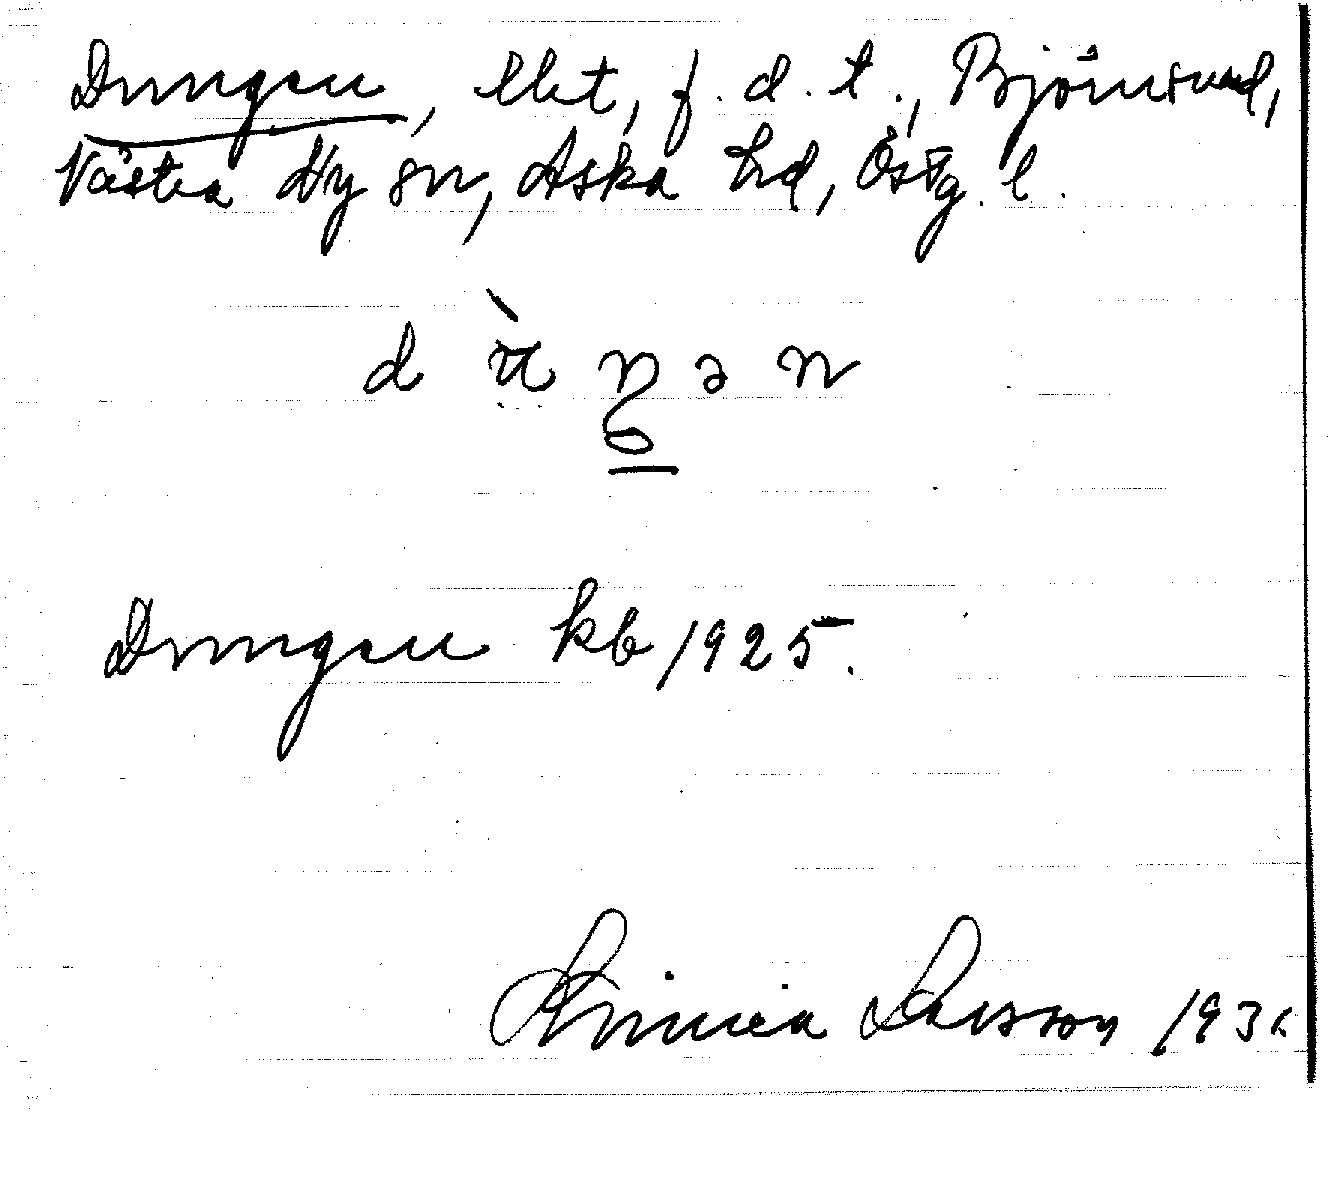 Dungen, lht, f. d. t., Björnsund,
Västra Ny sn, Aska hd, Östg. l.
Dungen kb 1925.
Linnea Larsson 193